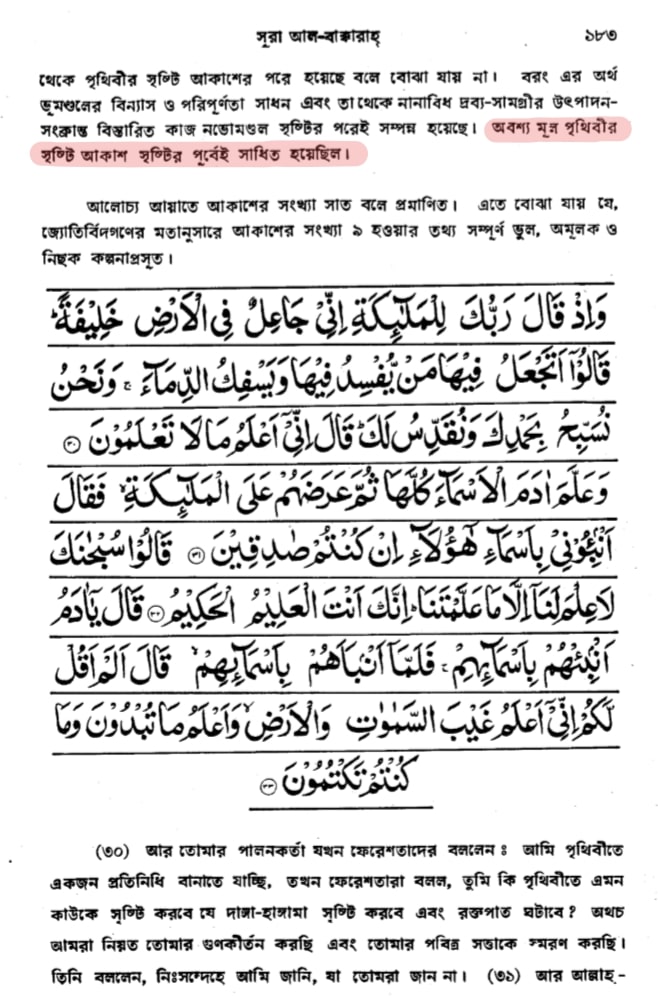 সূরা আল-বাক্বারাহ্ ১৮৩
থেকে পৃথিবীর সৃষ্টি আকাশের পরে হয়েছে বলে বোঝা যায় না। বরং এর অর্থ
ভূমণ্ডলের বিন্যাস ও পরিপূর্ণতা সাধন এবং তা থেকে নানাবিধ দ্রব্য-সামগ্রীর উৎপাদন-
সংক্রান্ত বিস্তারিত কাজ নভোমণ্ডল সৃষ্টির পরেই সম্পন্ন হয়েছে। অবশ্য মূল পৃথিবীর
সৃষ্টি আকাশ সৃষ্টির পূর্বেই সাধিত হয়েছিল।
আলোচ্য আয়াতে আকাশের সংখ্যা সাত বলে প্রমাণিত। এতে বোঝা যায় যে,
জ্যোতির্বিদগণের মতানুসারে আকাশের সংখ্যা ৯ হওয়ার তথ্য সম্পূর্ণ ভুল, অমূলক ও
নিছক কল্পনাপ্রসূত।
وَاِذْ قَالَ رَبُّكَ لِلْمَلٰٓئِكَةِ اِنِّىْ جَاعِلٌ فِى الْاَرْضِ خَلِيْفَةً ؕ
قَالُوْٓا اَتَجْعَلُ فِيْهَا مَنْ يُّفْسِدُ فِيْهَا وَيَسْفِكُ الدِّمَآءَ ۚ وَنَحْنُ
نُسَبِّحُ بِحَمْدِكَ وَنُقَدِّسُ لَكَ ؕ قَالَ اِنِّىْٓ اَعْلَمُ مَا لَا تَعْلَمُوْنَ ۝۳۰
وَعَلَّمَ اٰدَمَ الْاَسْمَآءَ كُلَّهَا ثُمَّ عَرَضَهُمْ عَلَى الْمَلٰٓئِكَةِ ۙ فَقَالَ
اَنْۢبِـُٔوْنِىْ بِاَسْمَآءِ هٰٓؤُلَآءِ اِنْ كُنْتُمْ صٰدِقِيْنَ ۝۳۱ قَالُوْا سُبْحٰنَكَ
لَا عِلْمَ لَنَآ اِلَّا مَا عَلَّمْتَنَا ؕ اِنَّكَ اَنْتَ الْعَلِيْمُ الْحَكِيْمُ ۝۳۲ قَالَ يٰٓاٰدَمُ
اَنْۢبِئْهُمْ بِاَسْمَآئِهِمْ ۚ فَلَمَّآ اَنْۢبَاَهُمْ بِاَسْمَآئِهِمْ ۙ قَالَ اَلَمْ اَقُلْ
لَّكُمْ اِنِّىْٓ اَعْلَمُ غَيْبَ السَّمٰوٰتِ وَالْاَرْضِ ۙ وَاَعْلَمُ مَا تُبْدُوْنَ وَمَا
كُنْتُمْ تَكْتُمُوْنَ ۝۳۳
(৩০) আর তোমার পালনকর্তা যখন ফেরেশতাদের বললেন : আমি পৃথিবীতে
একজন প্রতিনিধি বানাতে যাচ্ছি, তখন ফেরেশতারা বলল, তুমি কি পৃথিবীতে এমন
কাউকে সৃষ্টি করবে যে দাঙ্গা-হাঙ্গামা সৃষ্টি করবে এবং রক্তপাত ঘটাবে? অথচ
আমরা নিয়ত তোমার গুণকীর্তন করছি এবং তোমার পবিত্র সত্তাকে স্মরণ করছি।
তিনি বললেন, নিঃসন্দেহে আমি জানি, যা তোমরা জান না। (৩১) আর আল্লাহ্-